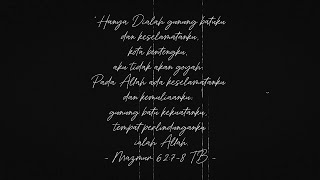 "Hanya Dialah gunung batuku
dan keselamatanku,
kota bentengku,
aku tidak akan goyah.
Pada Allah ada keselamatanku
dan kemuliaanku;
gunung batu kekuatanku,
tempat perlindunganku
ialah Allah.
- Mazmur 62:7-8 TB -